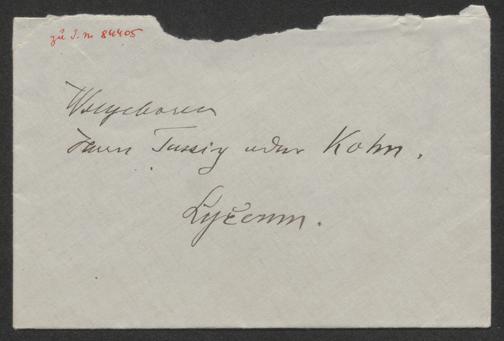 zu I. N. 84405
Wolgeboren
Herrn Tussig oder Kohn.
Lyzeum.